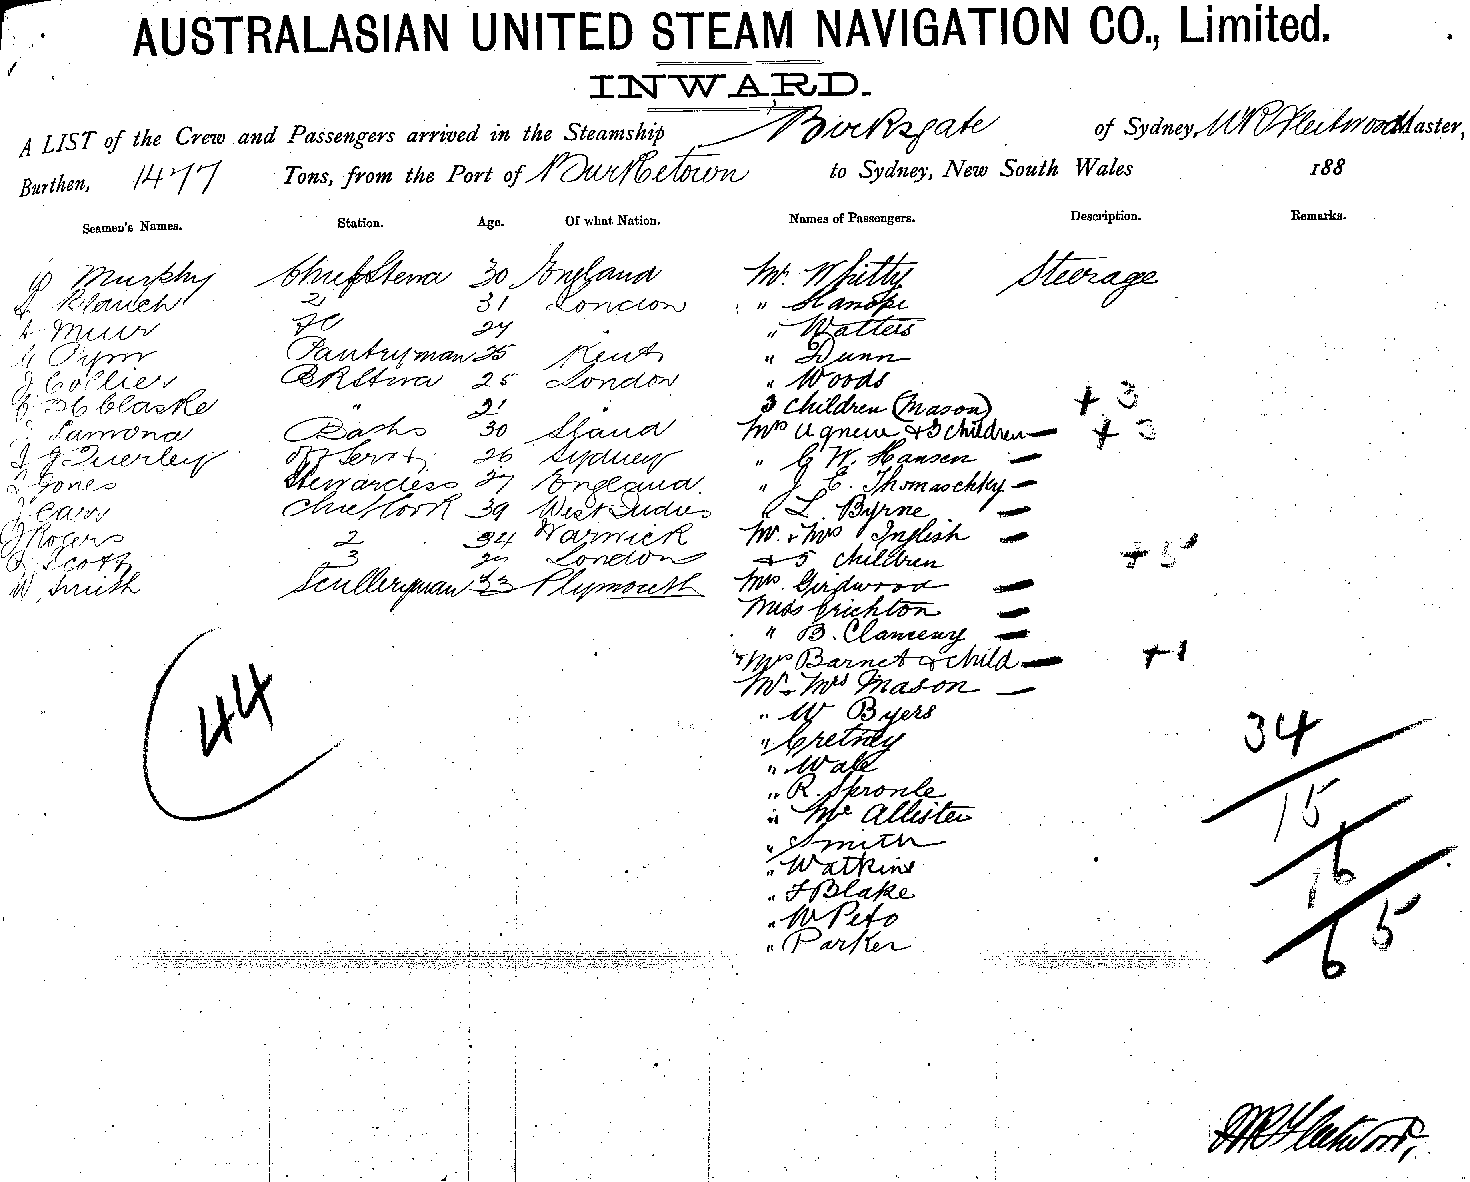 AUSTRALASIAN UNITED STEAM NAVIGATION CO., Limited.
INWARD.
A LIST of the Crew and Passengers arrived in the Steamship Birksgate of Sydney, W R Fleetwood Master,
Burthen, 1477 Tons, from the Port of Burketown to Sydney, New South Wales 188
Seamen's Names. Station. Age. Of what Nation. Names of Passengers. Description. Remarks.
Murphy Chief Stewd 30 England Mr. Whitty Steerage
31 London "
Muir 24 " Watters
Pym Pantryman 25 Kent " Dunn
J Collier BR Stwd 25 London " Woods
" 21 3 Children (Mason) + 3
30 Mrs Agnew & 3 children — + 3
26 Sydney " G W. Hansen —
Jones Stewardess 27 England. " J E. Thomaschky —
J Carr Chief Cook 39 West Indies " L. Byrne —
J Rogers 2 34 Warwick Mr. & Mrs Inglish —
Scott 3 London & 5 children + 5
W Smith Sculleryman Plymouth Mrs Girdwood —
Miss Crichton —
" B. Clancey —
Mrs Barnet & child — + 1
44
Mr & Mrs Mason —
" W Byers
" Cretney
" Wale
" R. Sproule
" McAllister
" Smith
" Watkins
" F Blake
" W Peto
" Parker
34
15
16
6 5
W R Fleetwood,